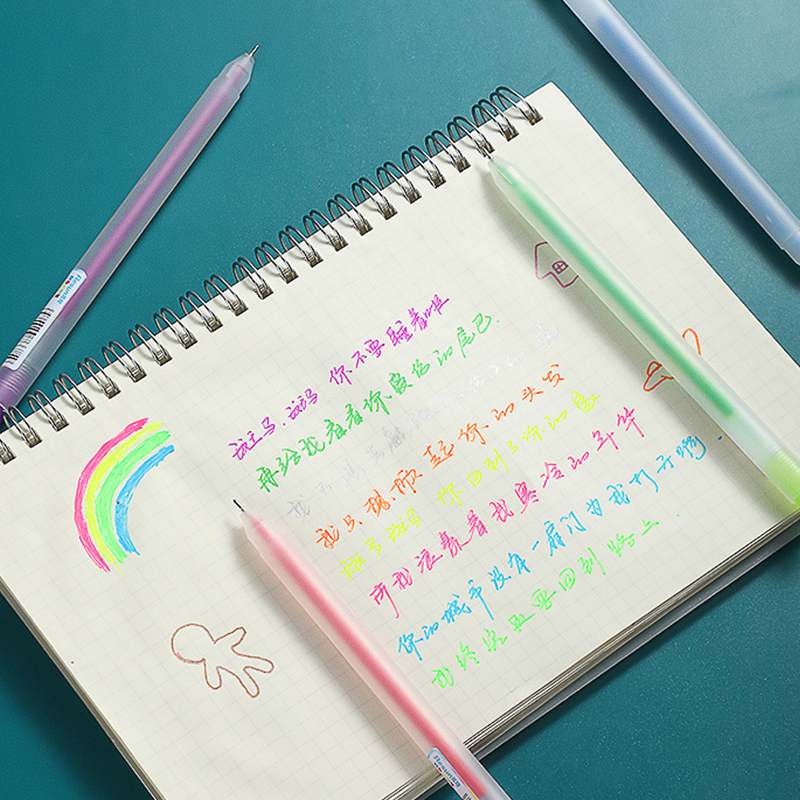 斑马,斑马 你不要睡着啦
再给我看看你受伤的尾巴
我不想去触
我只想掀起你的头发
斑马斑马 你回到了你的家
而我浪费着我寒冷的年华
你的城市没有一扇门为我打开啊.
我终究还要回到路上.